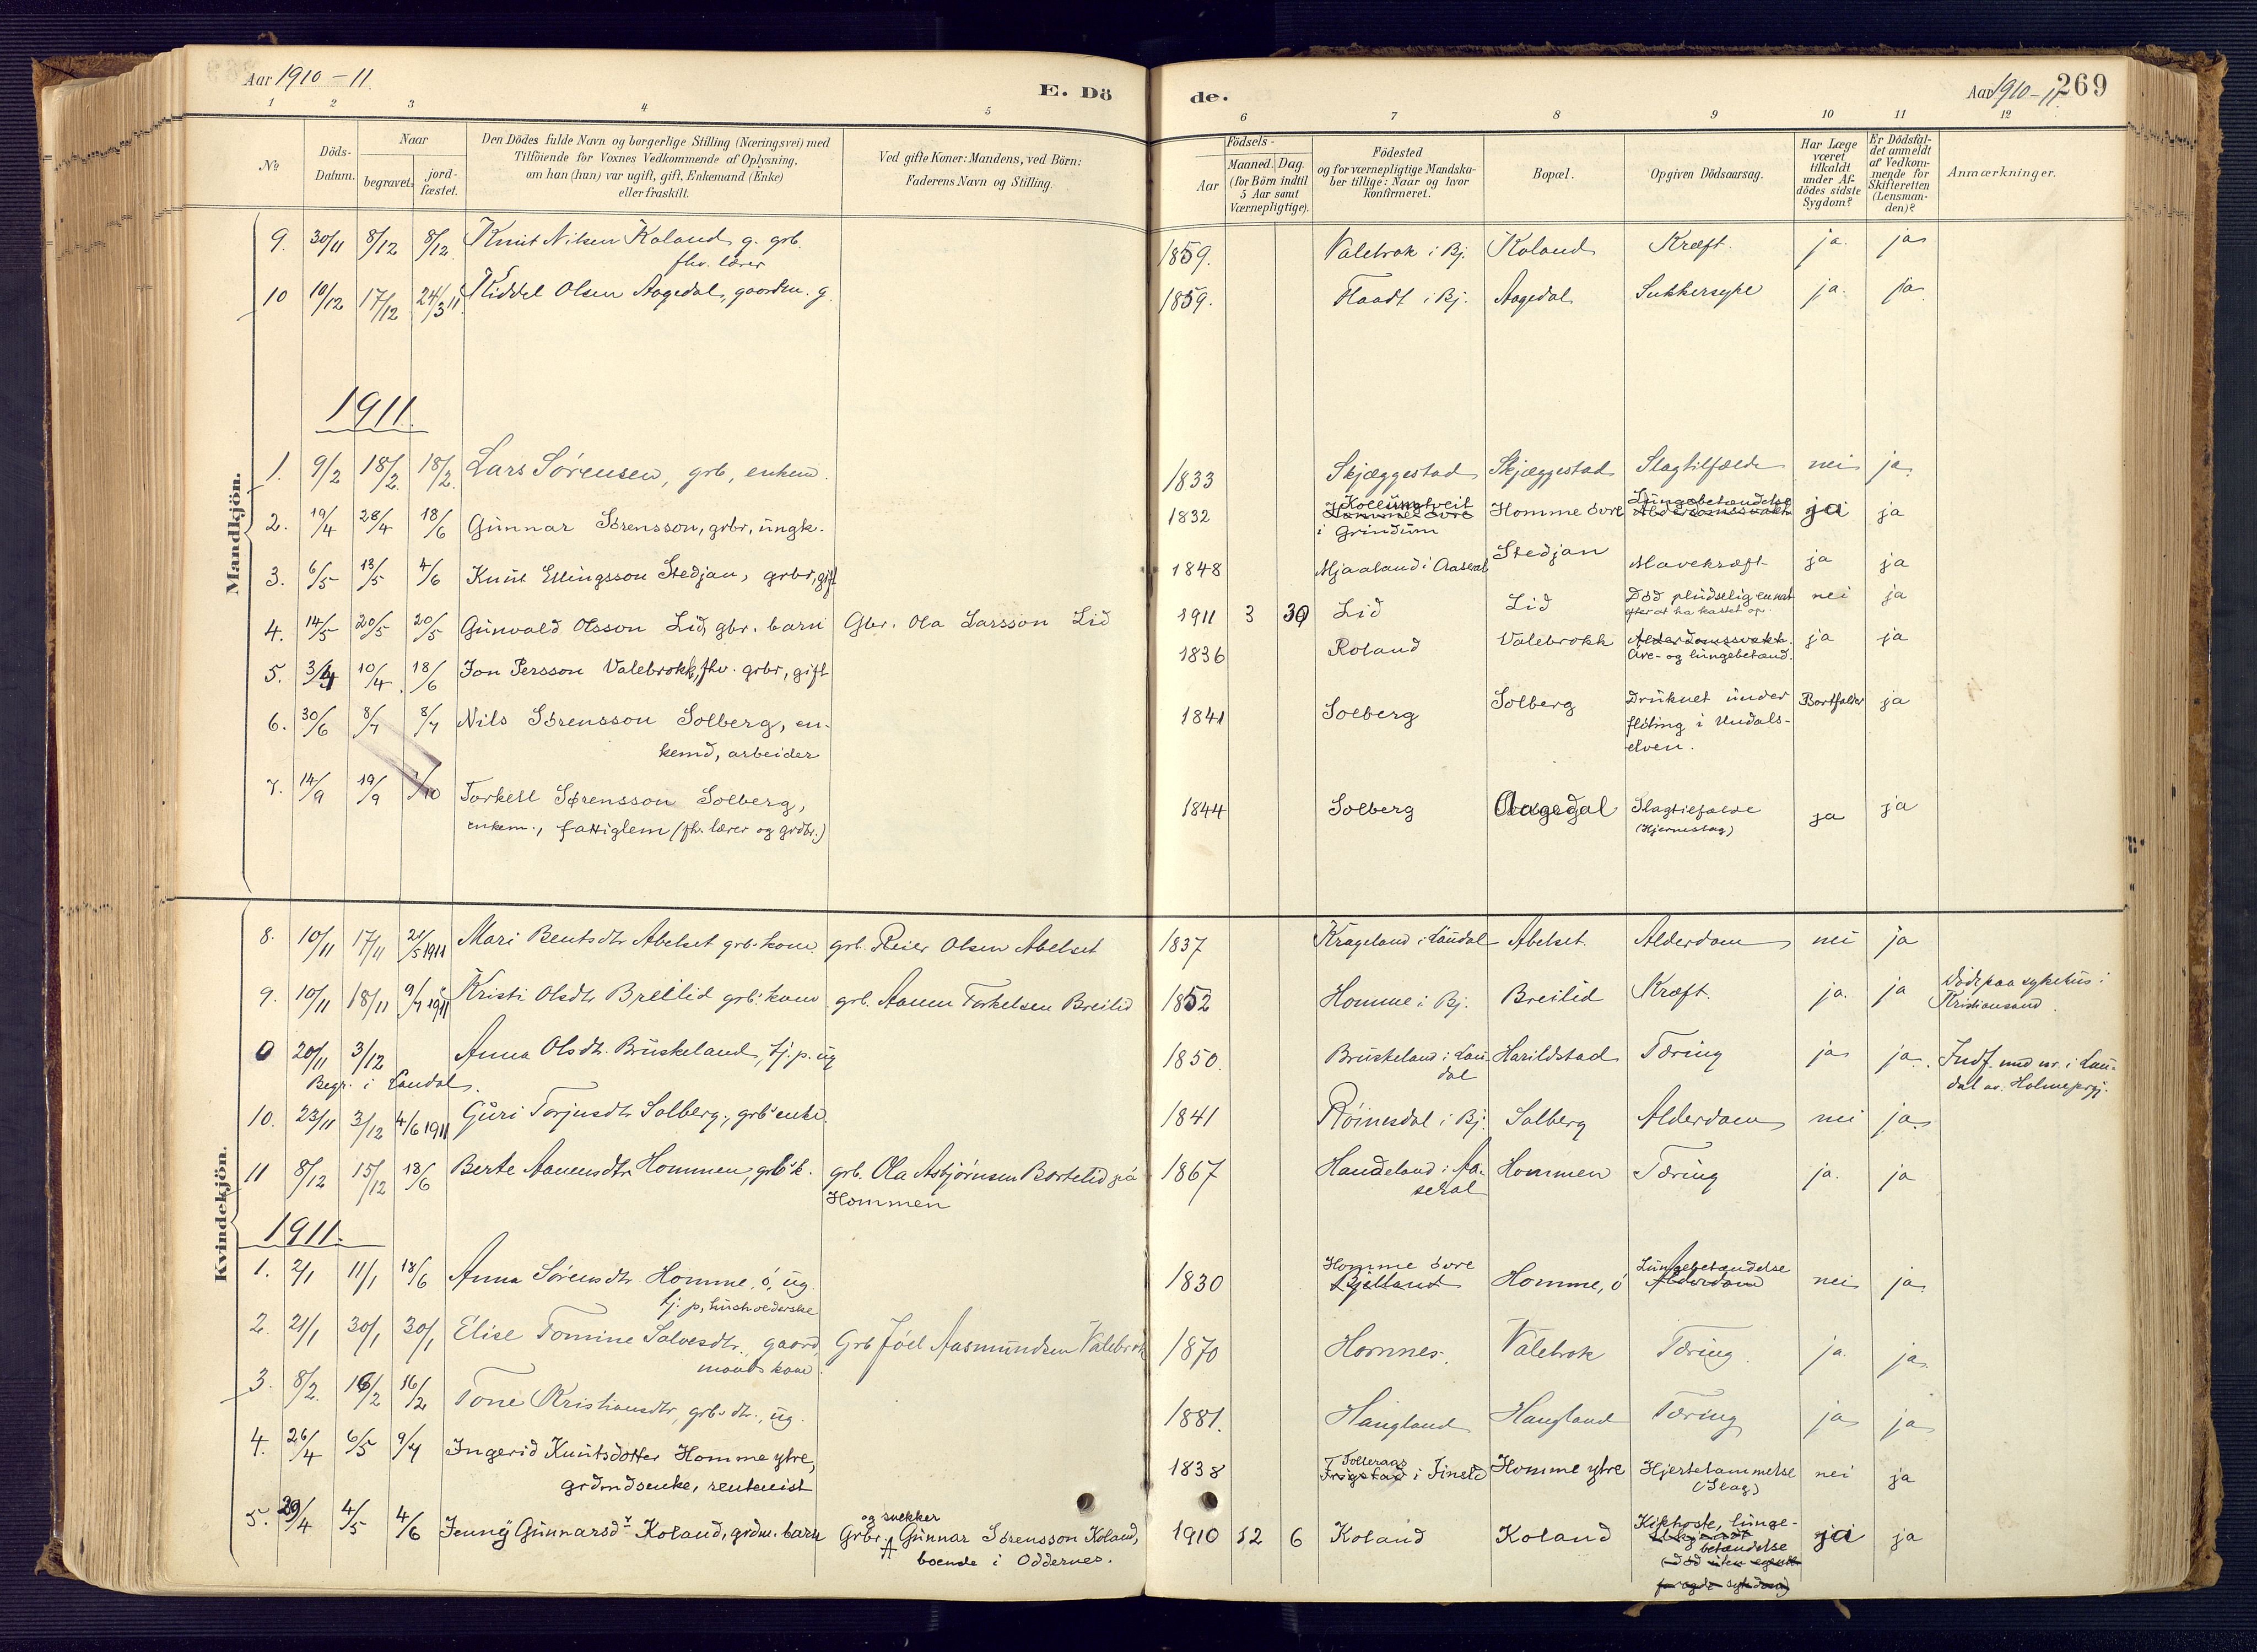 Aar 1910-11.
E. Dö
de.
Aar 1910-11.
269
1 2 3 4 5 6 7 8 9 10 11 12
№
Döds-Datum.
Naar
begravet.
jordfæstet.
Den Dödes fulde Navn og borgerlige Stilling (Næringsvei) med
Tilföiende for Voxnes Vedkommende af Oplysning,
om han (hun) var ugift, gift, Enkemand (Enke)
eller fraskilt.
Ved gifte Koner: Mandens, ved Börn:
Faderens Navn og Stilling.
Födsels-
Aar
Maaned. Dag.
(for Börn indtil
5 Aar samt
Værnepligtige).
Födested
og for værnepligtige Mandska-
ber tillige: Naar og hvor
konfirmeret.
Bopæl.
Opgiven Dödsaarsag.
Har Læge
været
tilkaldt
under Af-
dödes sidste
Sygdom?
Er Dödsfal-
det anmeldt
af Vedkom-
mende for
Skifteretten
(Lensman-
den)?
Anmærkninger.
Mandkjön.
9. 30/11 8/12 8/12 Knut Nilsen Koland g. grb. 1859. Valebrok i Bj. Koland Kræft. ja. ja
fhv. lærer
10 10/12 17/12 24/3 11. Kiddel Olsen Aagedal, gaardm. g. 1859. Flaadt i Bj. Aagedal Sukkersyke ja. ja
1911.
1. 9/2 18/2. 18/2. Lars Sørensen, grb, enkem. 1833 Skjæggestad Skjæggestad Slagtilfælde nei ja.
2. 19/4 28/4 18/6 Gunnar Sørensson, grbr, ungk. 1832 Kollungtveit Homme øvre Lungebetændelse ja ja
Homme øvre Alderdomssvakh
i Grindum
3. 6/5 13/5 4/6 Knut Ellingsson Stedjan, grbr, gift 1848 Mjaaland i Aaseral Stedjan Mavekræft ja ja
4. 14/5 20/5 20/5 Gunvald Olsson Lid, gbr. barn Gbr. Ola Larsson Lid 1911 3 30 Lid Lid Död pludselig en nat nei ja
efter at ha kastet op.
5. 3/4 10/4 18/6 Jon Persson Valebrokk, fhv. grbr, gift 1836 Roland Valebrokk Alderdomssvakh. ja ja
Øre- og lungebetænd.
6. 30/6 8/7 8/7 Nils Sørensson Solberg, en- 1841 Solberg Solberg Druknet under Bortfalder ja
kemd, arbeider fløting i Undals-
elven.
7. 14/9 19/9 1/10 Torkell Sørensson Solberg, 1844 Solberg Aagedal Slagtilfælde ja ja
enkem., fattiglem (fh. lærer og grdbr.) (Hjerneslag)
Kvindekjön.
8. 10/11 17/11 21/5 1911 Mari Bentsdtr Abelset grb. kone. grb. Reier Olsen Abelset 1837 Krageland i Laudal Abelset. Alderdom nei ja
9. 10/11 18/11 9/7 1911 Kristi Olsdtr Breilid grb. kone grb. Aanen Torkelsen Breilid 1852 Homme i Bj. Breilid Kræft. ja. ja Döde paa sykehus i
Kristiansand.
0 20/11 3/12 Anna Olsdtr. Bruskeland, tj. p. ug 1850. Bruskeland i Lau- Harildstad Tæring ja ja. Indf. med nr. i Lau-
Begr. i Laudal. dal dal av. Holmeprgj.
10. 23/11 3/12 4/6 1911 Guri Torjusdtr Solberg, grb. enke. 1841 Röinesdal i Bj. Solberg Alderdom nei ja.
11 8/12 15/12 18/6 Berte Aanensdtr Hommen, grb. k. grb. Ola Asbjörnsen Bortelid på 1867 Haudeland i Aa- Hommen Tæring ja. ja
Hommen seral
1911.
1. 2/1 11/1 18/6 Anna Sörensdtr Homme, ö, ug. 1830 Homme övre Homme, ö Lungebetændelse nei ja
tj. p, husholderske Bjelland Alderdom
2. 21/1 30/1 30/1 Elise Tomine Salvesdtr., gaard- Grb Jöel Aasmundsen Valebrok 1870 Homnes. Valebrok Tæring. ja ja
mands kone.
3. 8/2. 16/2 16/2 Tone Kristiansdtr, grb. dtr., ug. 1881. Haugland Haugland Tæring ja ja
4. 26/4 6/5 9/7 Ingerid Knutsdotter Homme ytre, 1838 Tolleraas Homme ytre Hjertelammelse nei ja
grdmdsenke, rentenist Trygstad i Finsld (Slag)
5. 29/4 4/5 4/6 Jenny Gunnarsdr Koland, grdm. barn Grbr. og snekker Gunnar Sørensson Koland, 1910 12 6 Koland Koland Kikhoste, lunge- ja ja
boende i Oddernes. betændelse
(död uten egentl
foregde sykdom)